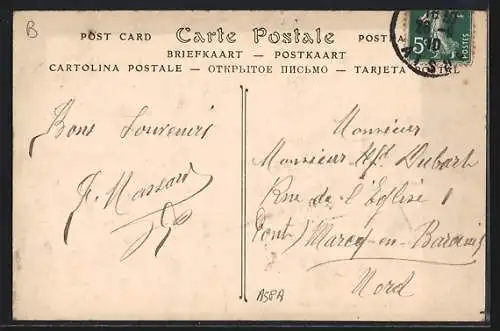 B
POST CARD Carte Postale POSTKA
BRIEFKAART — POSTKAART
CARTOLINA POSTALE — ОТКРЫТОЕ ПИСЬМО — TARJETA
5c
POSTES
10
Bons Souvenirs
Monsieur
Monsieur Dubart
Rue de l'Eglise 1
Pont) Marcq-en-Baroeuil
Nord